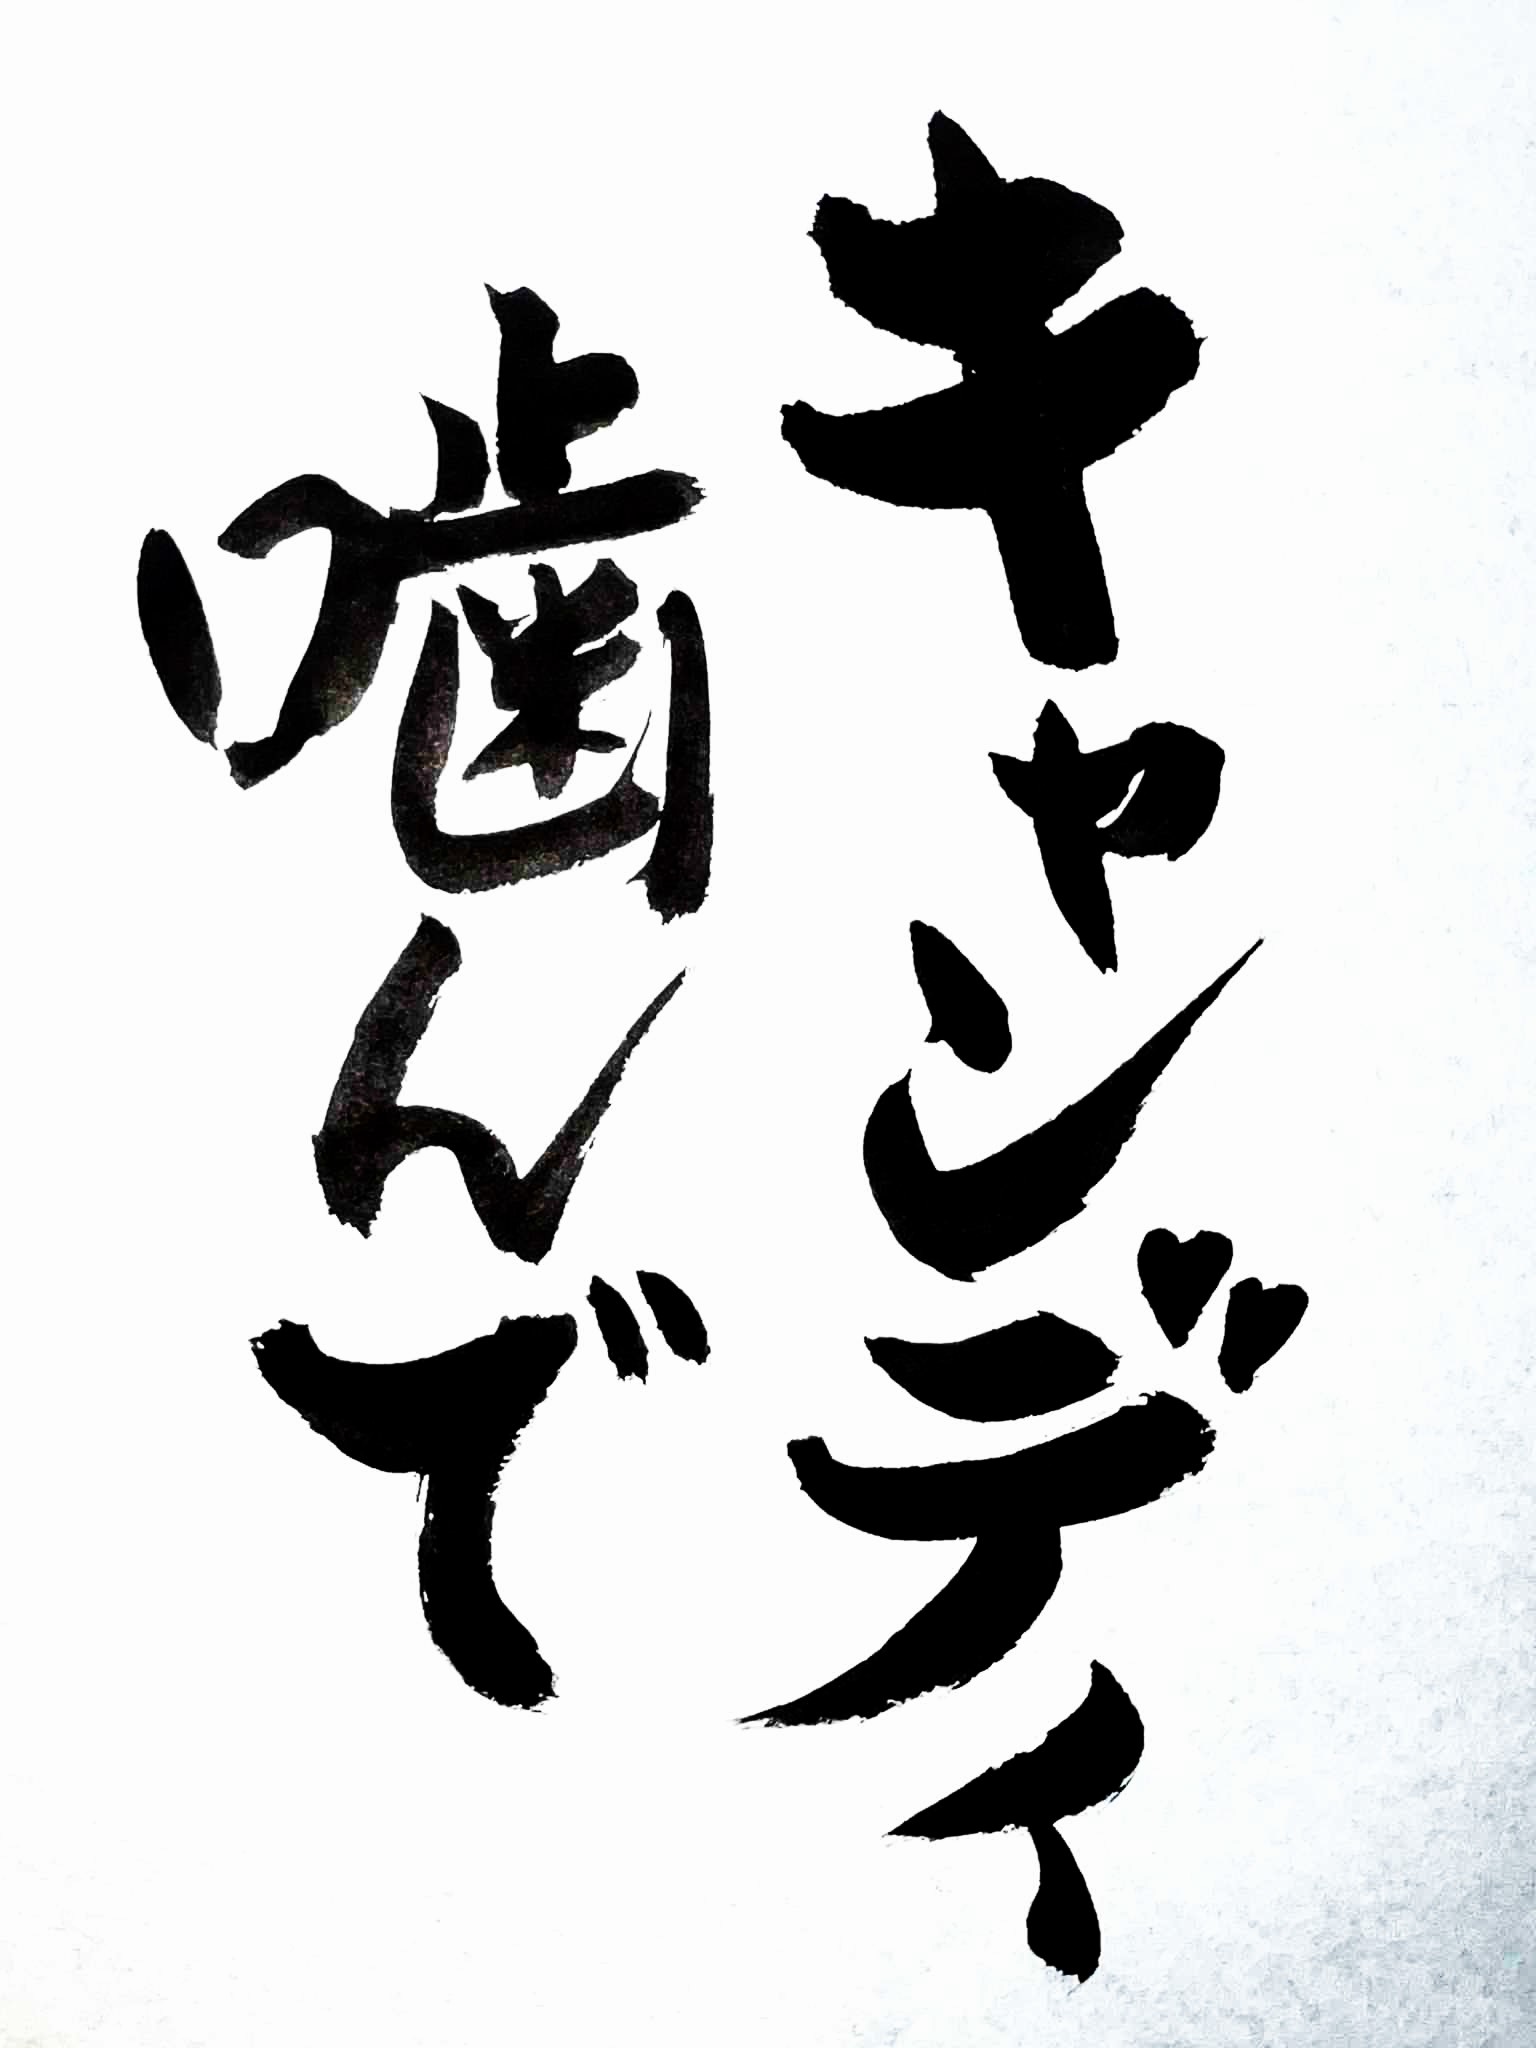 キャンディ
噛んで